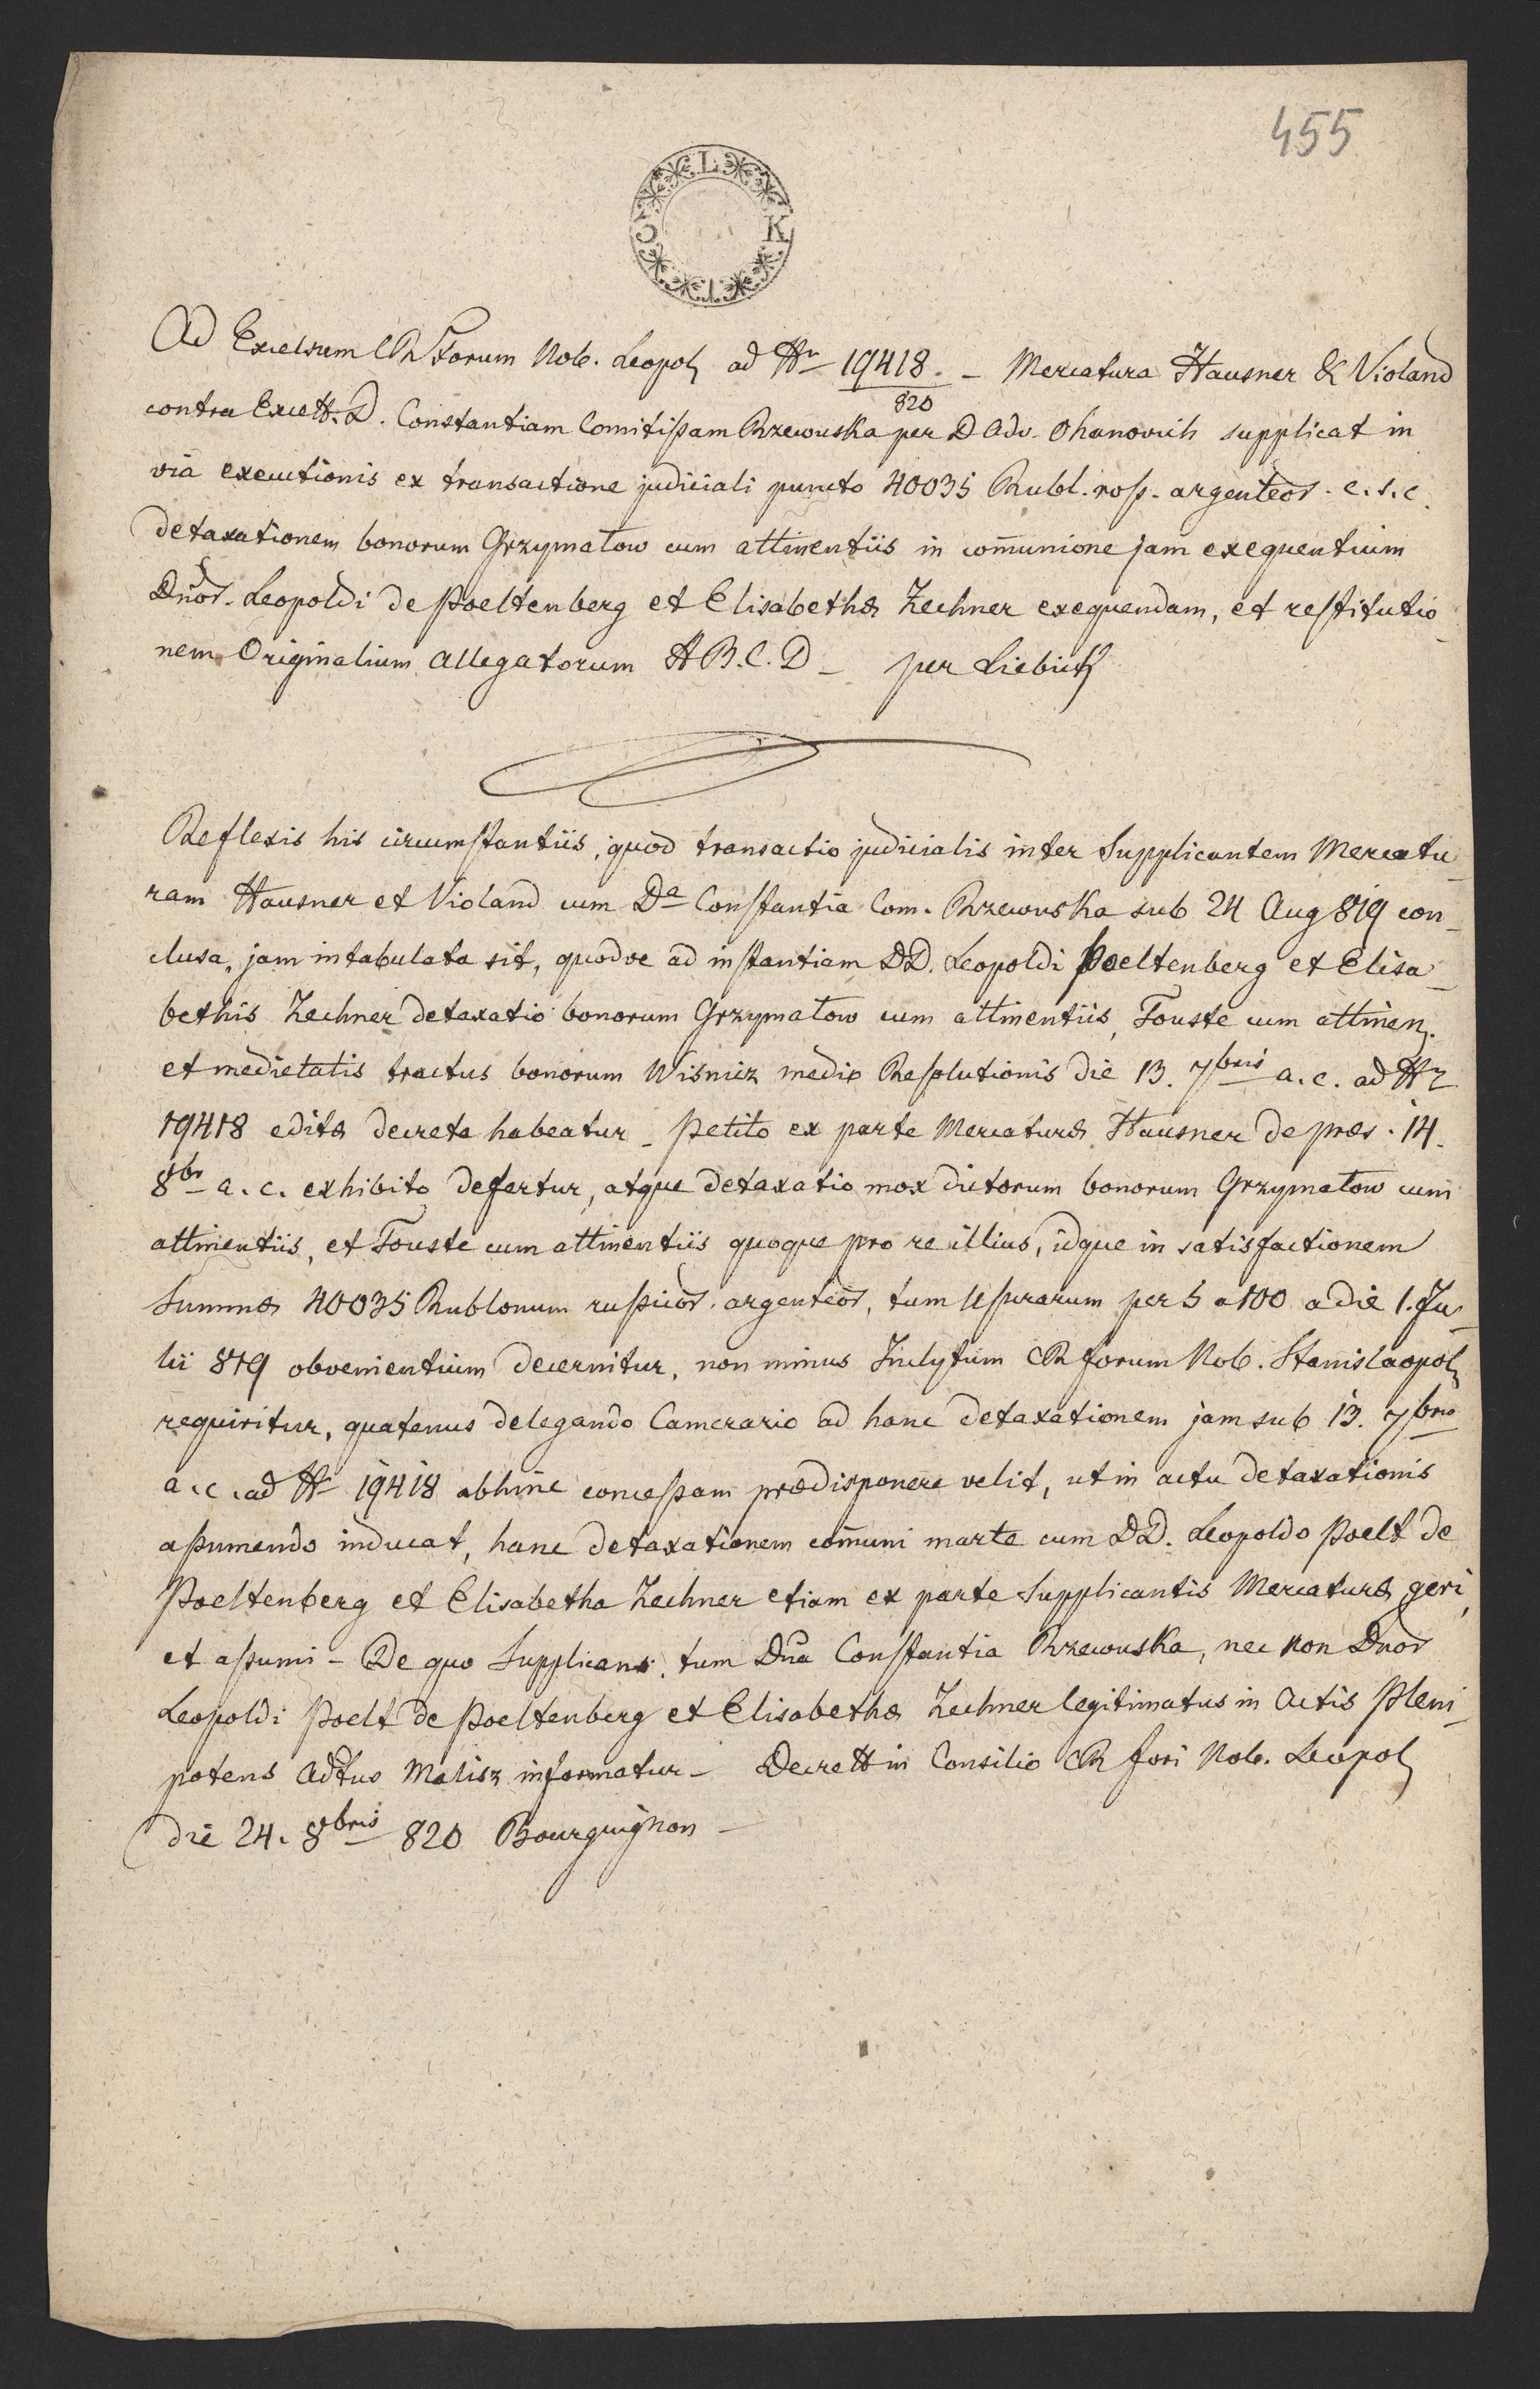 455
L
C K
I
Ad Excelsum CR Forum Nob. Leopol ad Nr 19418. – Mercatura Hausner & Violand
820
contra Excell. D. Constantiam Comitissam Rzewuska per D Adv. Ohanovich supplicat in
via executionis ex transactione judiciali puncto 40035 Rubl. ross. argenteor. c.s.c.
detaxationem bonorum Grzymałow cum attinentiis in com̄unione jam exequentium
Dn̄or. Leopoldi de Poeltenberg et Elisabethæ Zechner exequendam, et restitutio
nem Originalium Allegatorum A B.C.D – per Liebich
Reflexis his circumstantiis, quod transactio judicialis inter Supplicantem Mercatu_
ram Hausner et Violand cum Da Constantia Com. Rzewuska sub 24 Aug 819 con_
clusa, jam intabulata sit, quodve ad instantiam DD. Leopoldi Poeltenberg et Elisa_
bethis Zechner detaxatio bonorum Grzymałow cum attinentiis, Touste cum attinen.
et medietatis tractus bonorum Wisnicz medio Resolutionis die 13. 7bris a.c. ad Nr
19418 editæ decreta habeatur – Petito ex parte Mercaturæ Hausner de præs. 14.
8br a.c. exhibito defertur, atque detaxatio mox dictorum bonorum Grzymałow cum
attinentiis, et Touste cum attinentiis quoque pro re illius, idque in satisfactionem
Summæ 40035 Rublonum russicor. argenteor, tum Usurarum per 5 a 100 a die 1. Ju_
lii 819 obvenientium decernitur, non minus Inclytum CR forum Nob. Stanislaopol
requiritur, quatenus delegando Camerario ad hanc detaxationem jam sub 13. 7bris
a.c. ad Nr 19418 abhinc concessam prædisponere velit, ut in actu detaxationis
assumendo inducat, hanc detaxationem com̄uni marte cum DD. Leopoldo Poelt de
Poeltenberg et Elisabetha Zechner etiam ex parte Supplicantis Mercaturæ geri,
et assumi – De quo Supplicans, tum Dn̄a Constantia Rzewuska, nec non Dn̄or
Leopoldi Poelt de Poeltenberg et Elisabethæ Zechner legitimatus in Actis Pleni_
potens Adtus Malisz informatur – Decrett in Consilio CR fori Nob. Leopol
die 24. 8bris 820 Bourguignon –